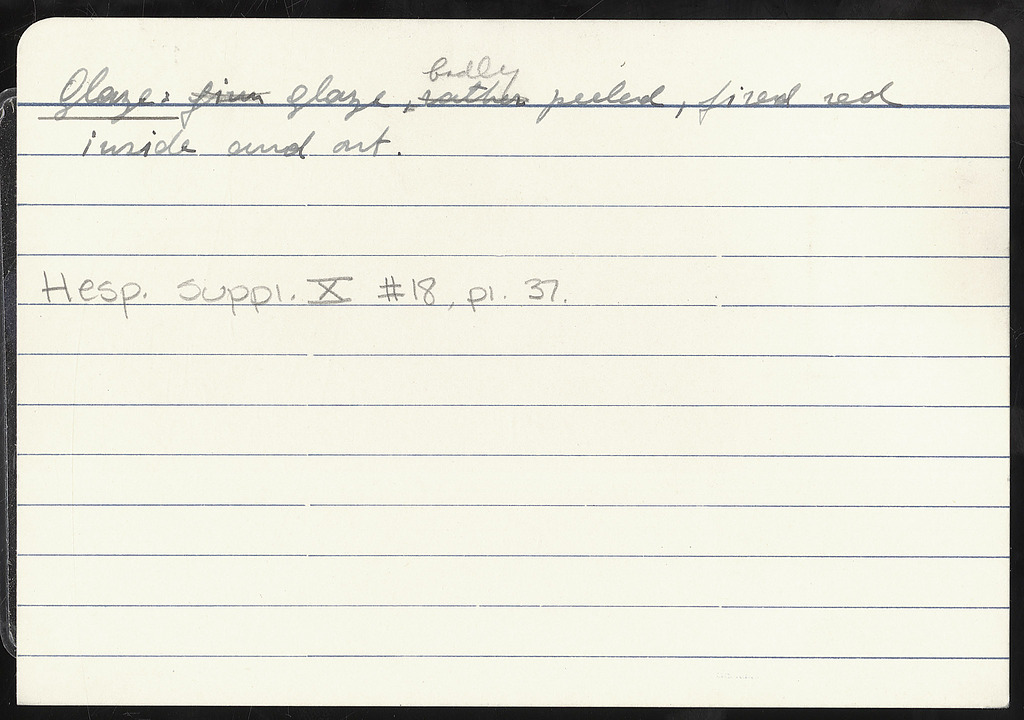 Glaze: firm glaze, badly rather peeled, fired red
inside and out.
Hesp. Suppl. X #18, pl. 37.